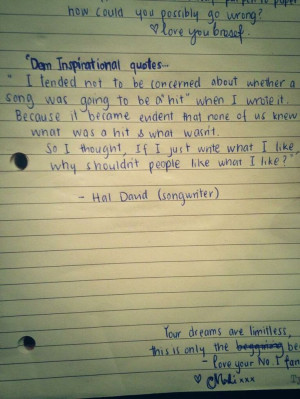 to paper
how could you possibly go wrong?
♡ love you
"Dem Inspirational quotes...
" I tended not to be concerned about whether a
song was going to be a "hit" when I wrote it.
Because it became evident that none of us knew
what was a hit & what wasn't.
So I thought, If I just write what I like,
why shouldn't people like what I like?"
- Hal David (songwriter)
Your dreams are limitless,
this is only the be
- love your No. 1 fan
♡ xxx